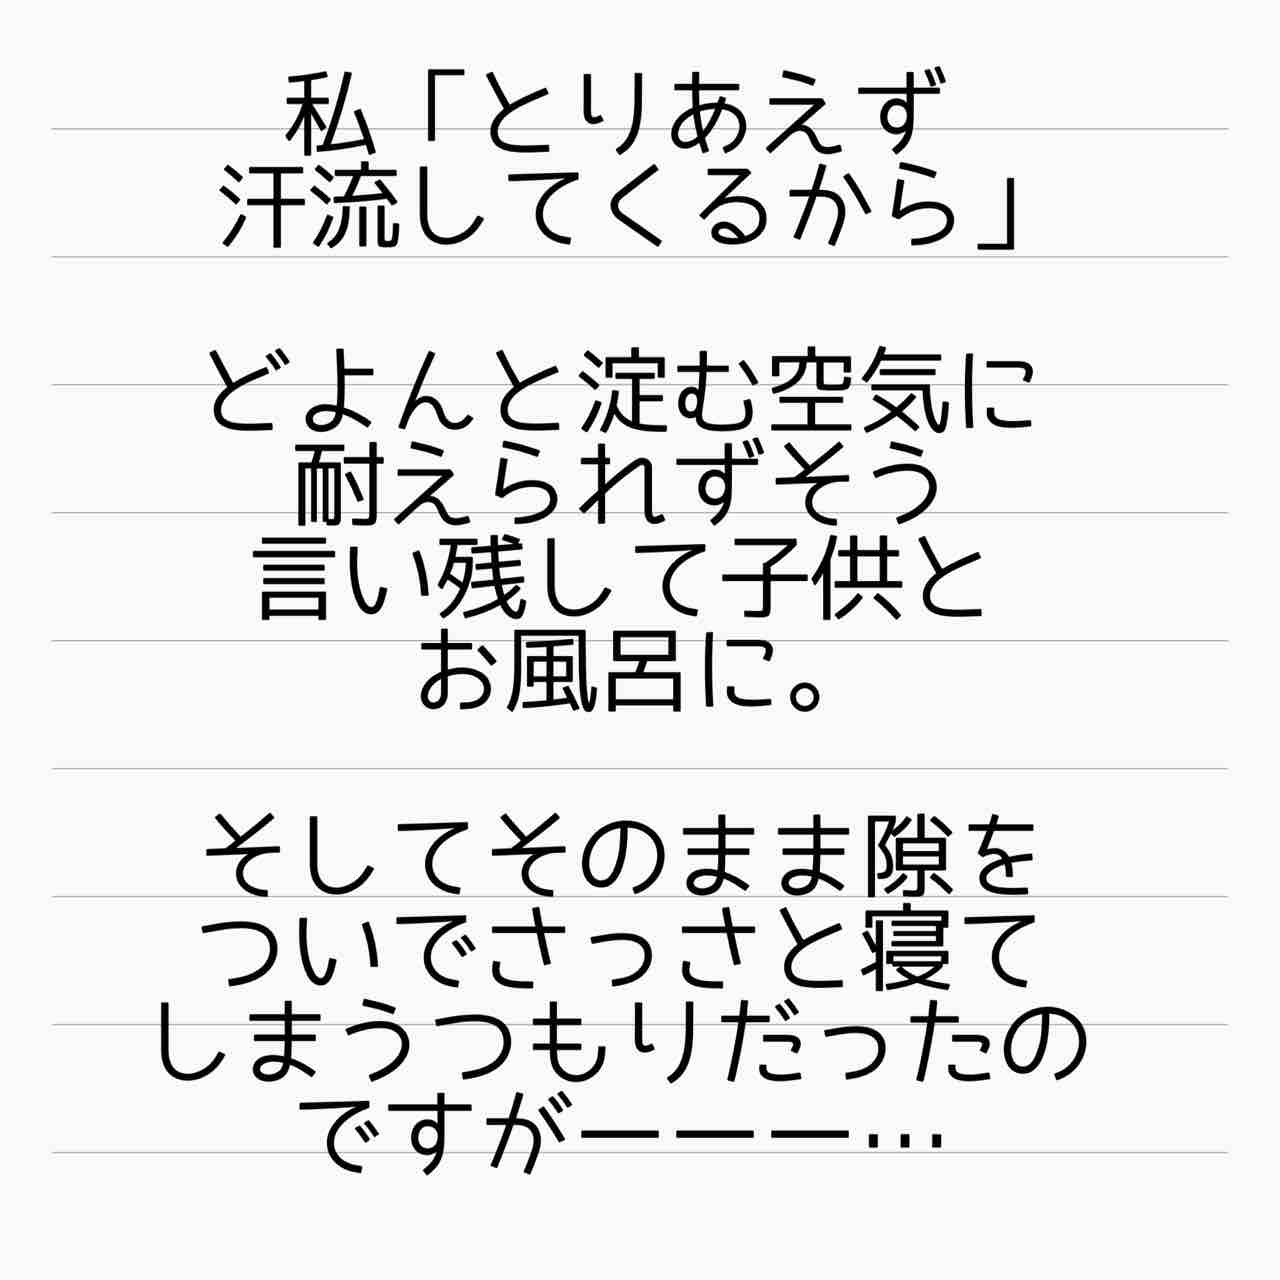 私「とりあえず
汗流してくるから」
どよんと淀む空気に
耐えられずそう
言い残して子供と
お風呂に。
そしてそのまま隙を
ついでさっさと寝て
しまうつもりだったの
ですがーーー…